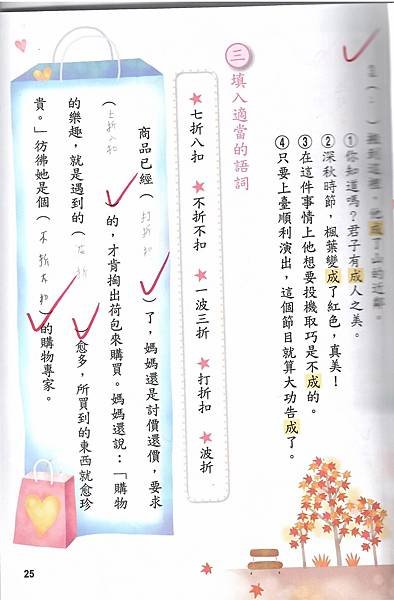 2(：)搬到這裡，他成了山的近鄰。
①你知道嗎？君子有成人之美。
②深秋時節，楓葉變成了紅色，真美！
③在這件事情上他想要投機取巧是不成的。
④只要上臺順利演出，這個節目就算大功告成了。
三 填入適當的語詞
★七折八扣 ★不折不扣 ★一波三折 ★打折扣 ★波折
商品已經（打折扣）了，媽媽還是討價還價，要求
（七折八扣）的，才肯掏出荷包來購買。媽媽還說：「購物
的樂趣，就是遇到的（波折）愈多，所買到的東西就愈珍
貴。」彷彿她是個（不折不扣）的購物專家。
25